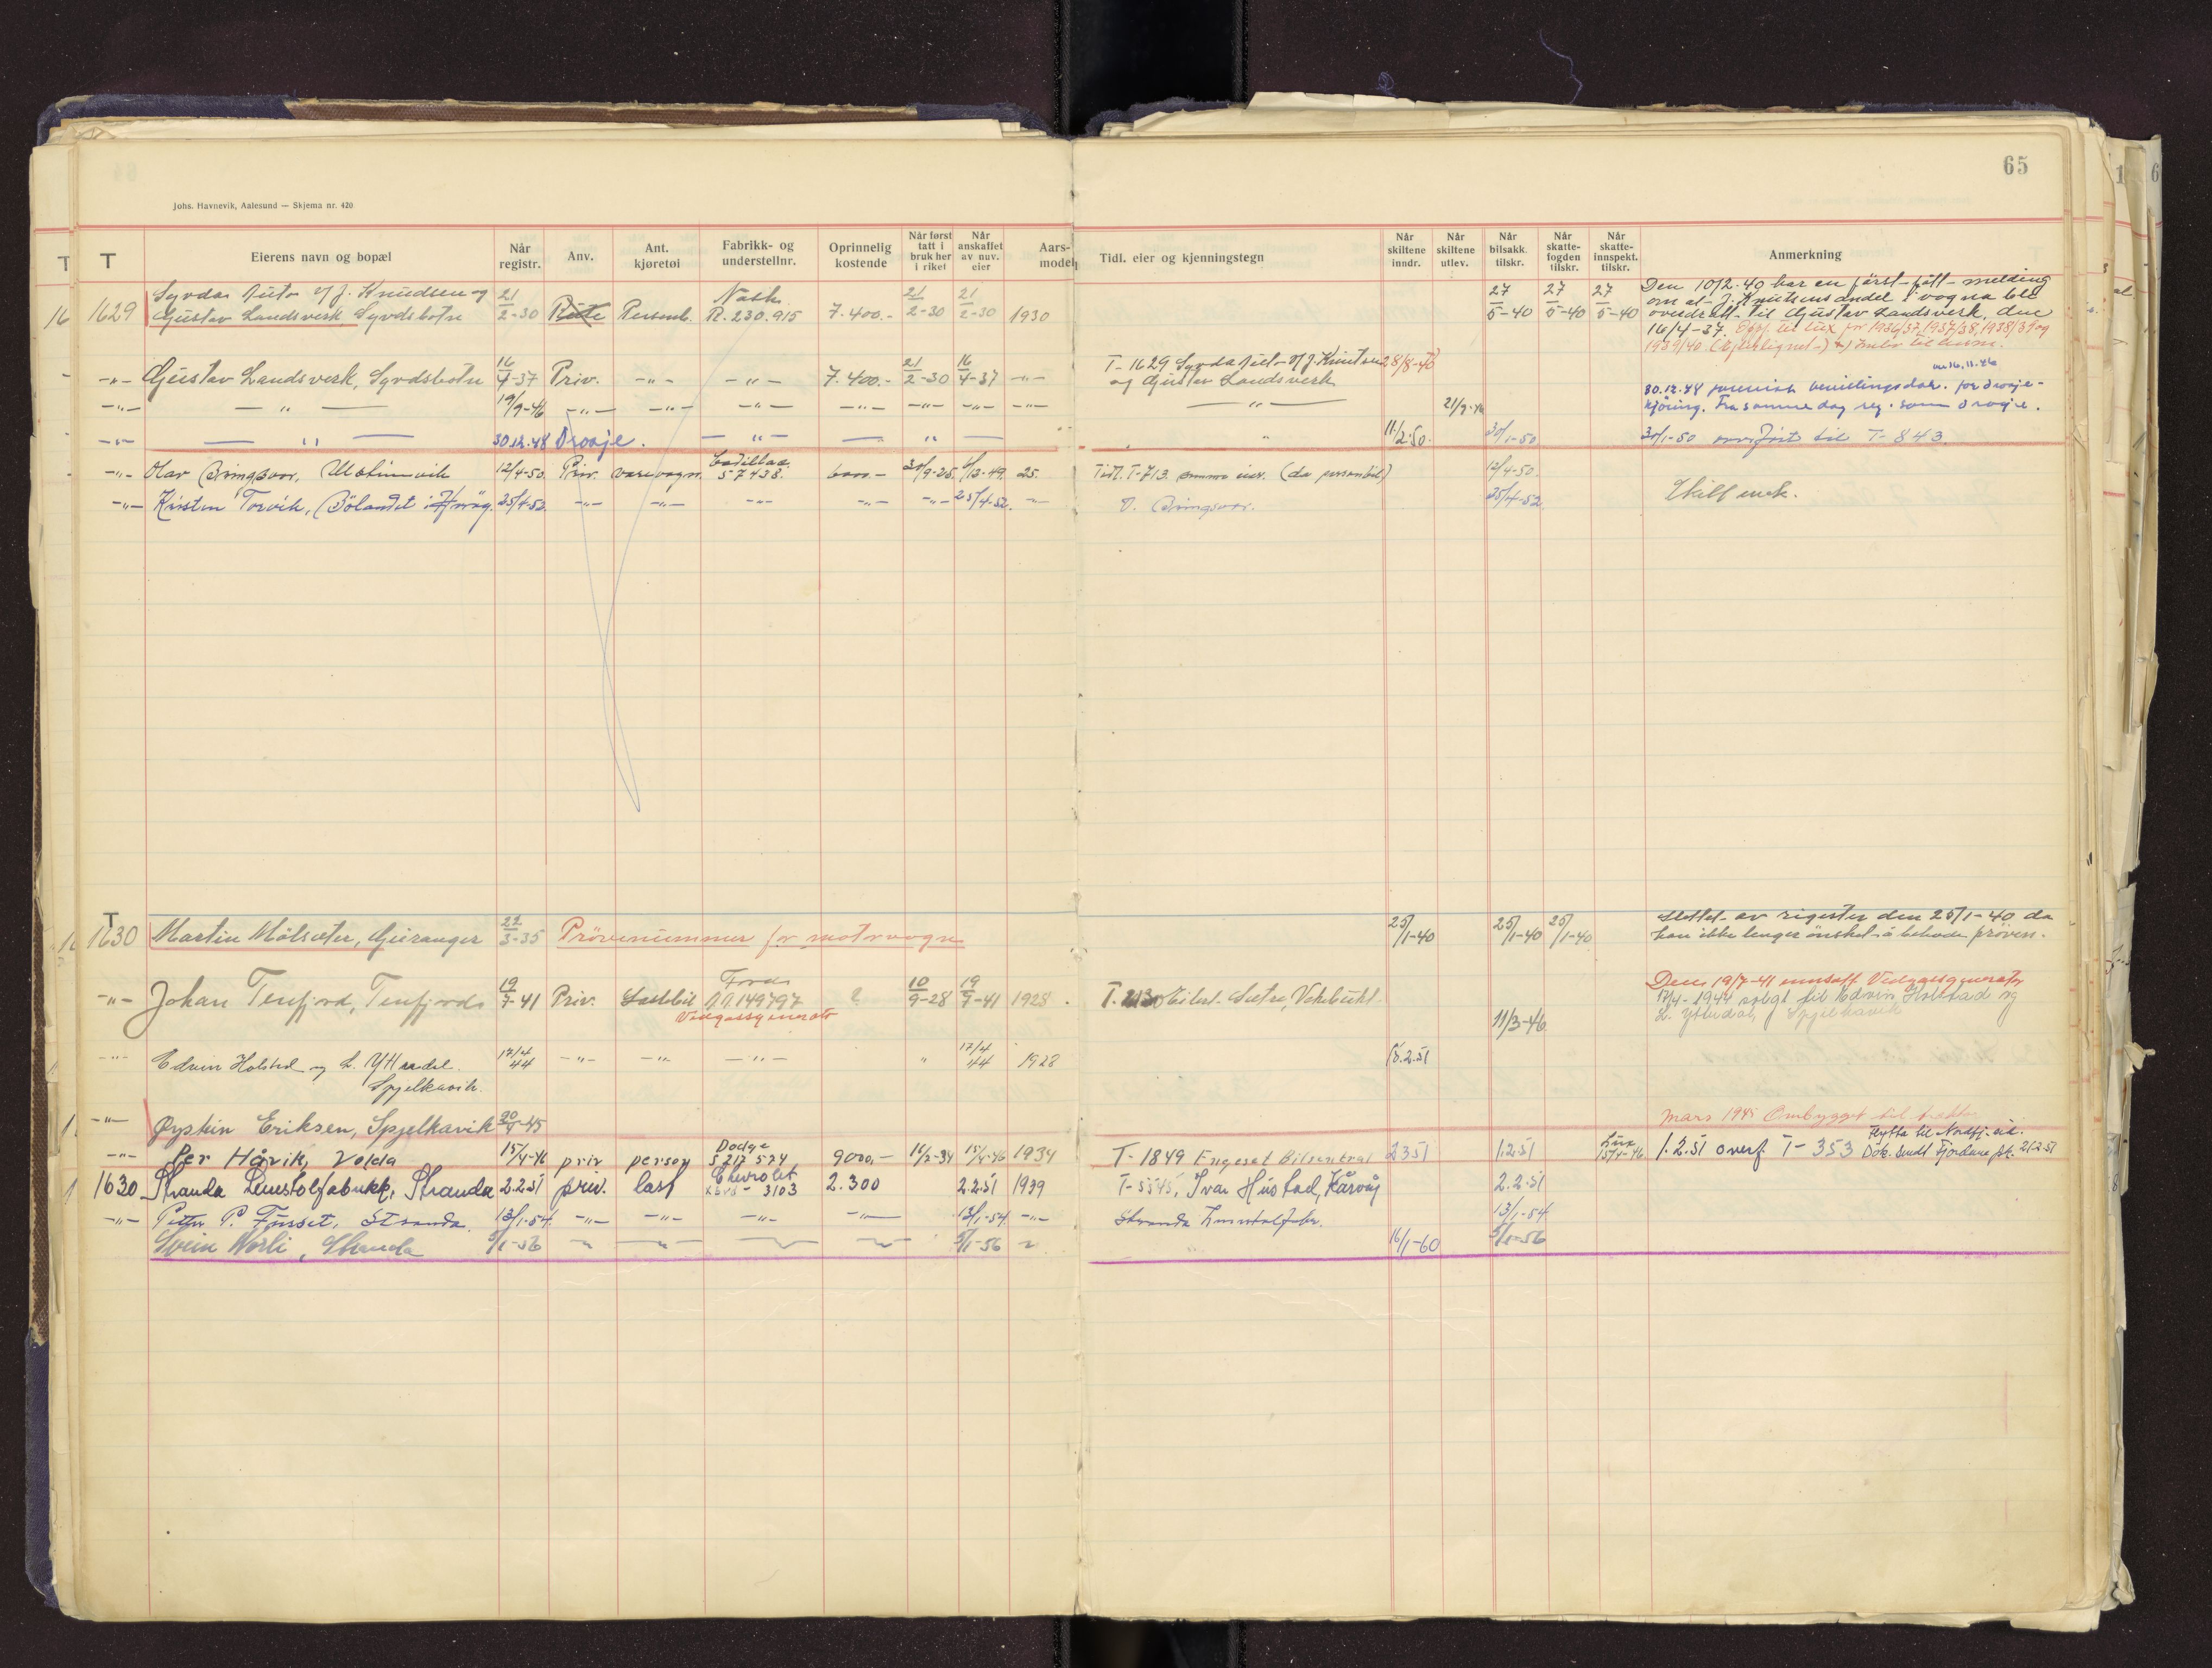 65
Johs. Havnevik, Aalesund — Skjema nr. 420
T Eierens navn og bopæl Når registr. Anv. Ant. kjøretøi Fabrikk- og understellnr. Oprinnelig kostende Når først tatt i bruk her i riket Når anskaffet av nuv. eier Aars-modell Tidl. eier og kjenningstegn Når skiltene inndr. Når skiltene utlev. Når bilsakk. tilskr. Når skatte-fogden tilskr. Når skatte-innspekt. tilskr. Anmerkning
Syvdas Auto v/ J. Knudsen og 21 Nash 21 21 27 27 27 Den 10/2.40 har en först fått melding
1629 Gustav Landsverk Syvdsbotn 2-30 Rute Personb. R.230.915 7.400.- 2-30 2-30 1930 5-40 5-40 5-40 om at J. Knutsens andel i vogna ble
overdratt til Gustav Landsverk, den
16/4-37. for 1936/37, 1937/38, 1938/39 og
1939/40.
-"- Gustav Landsverk, Syvdsbotn 16/4-37 Priv. -"- -"- 7.400.- 21/2-30 16/4-37 -"- T-1629 Syvda Auto v/ J. Knutsen 28/8-40
og Gustav Landsverk
16.11.46
-"- -"- 19/9-46 -"- -"- -"- -"- -"- -"- -"- -"- 21/9-46 30.12.48 bevillingsdok. for drosje-
kjöring. Fra samme dag reg. som drosje.
-"- -"- 30.12.48 Drosje. -"- -"- " 11/2-50. 30/1-50 30/1-50 overfört til T-843.
-"- Olav Bringsvor, Ulsteinvik 12/4-50. Priv. varevogn. Cadillac 57438. 25. Tidl. T-713. (da personbil) 12/4-50.
-"- Kristen Torvik, Bölandet i 25/4-52. -"- -"- -"- -"- -"- 25/4-52. -"- O. Bringsvor. 25/4-52.
T
1630 Martin Mölsæter, Geiranger 22/3-35 Prövenummer for motorvogn 25/1-40 25/1-40 25/1-40 Slettet av register den 25/1-40 da
han ikke lenger önsket å beholde pröven.
-"- Johan Tenfjord, Tenfjord 19/7-41 Priv. Lastebil Ford AA149797 ? 10/9-28 19/7-41 1928. T. 2130 Eilert Sætre, Vatnebukt.
Vedgassgenerator
11/3-46
Den 19/7-41 innsatt Vedgassgenerator
17/4-1944 solgt til Edvin Holstad og
L. Ytterdal, Spjelkavik
-"- Edvin Holstad og L. Ytterdal. 17/4 44 -"- -"- -"- " 17/4 44 1928 15.2.51
Spjelkavik.
-"- Øystein Eriksen, Spjelkavik 20/4-45 mars 1945 Ombygget til traktor
-"- Per Håvik, Volda 15/4-46 priv person Dodge 5217574 9000,- 16/2-34 15/4-46 1934 T-1849 Engeset Bilsentral 2351 1.2.51 1.2.51 overf. T-353 flytta til Nordfj.eid.
Dok. sendt Fjordane pk. 21.2.51
1630 Stranda Lenestolfabrikk, Stranda 2.2.51 priv. last Chevrolet 3103 2.300 2.2.51 1939 T-5545, Ivar Hustad, Kårvåg 2.2.51
-"- Petter P. Furset, Stranda. 13/1-54. -"- -"- -"- -"- 13/1-54. -"- Stranda Lenestolfabr. 13/1-54
Svein Norli, Stranda 5/1-56 5/1-56 16/1-60 5/1-56